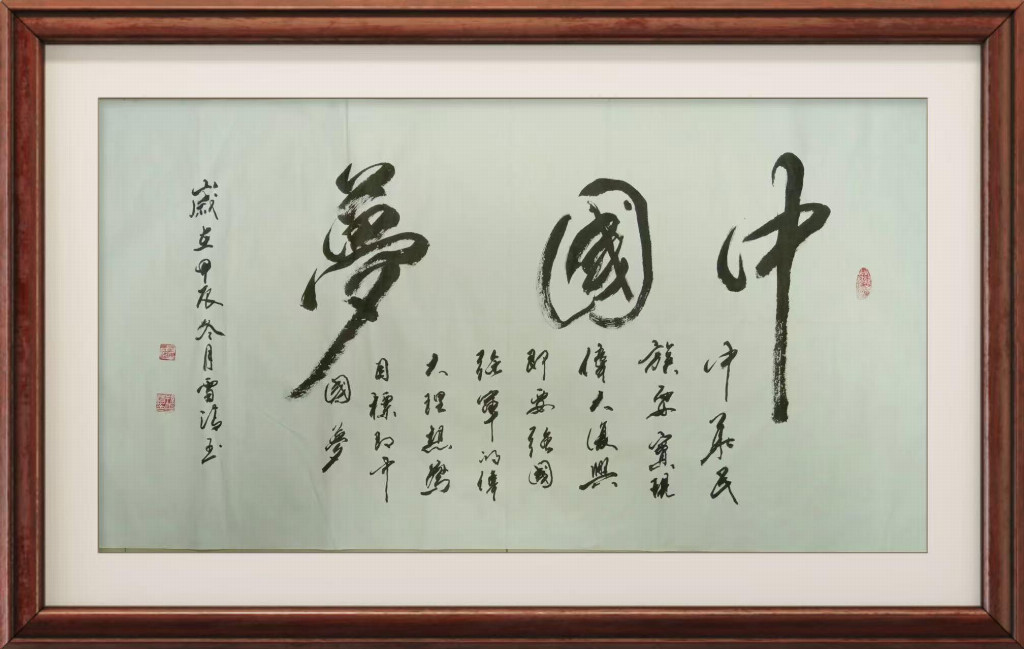 中國夢
中華民
族要實現
偉大復興
即要強國
強軍的偉
大理想為
目標即中
國夢
歲在甲辰冬月雷清玉